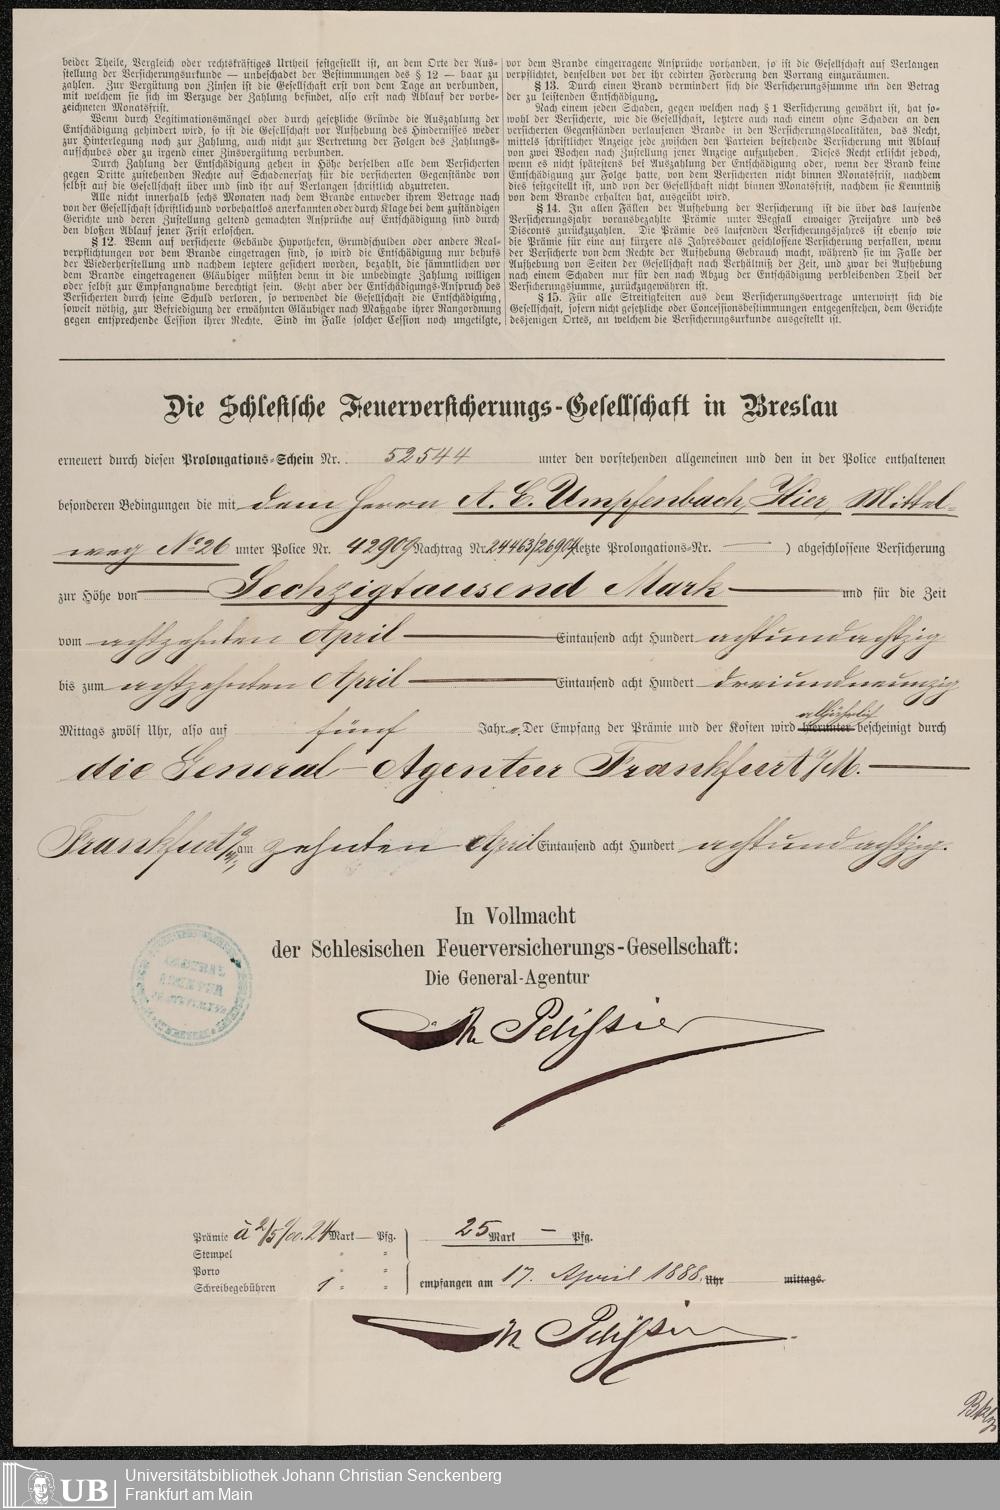 beider Theile, Vergleich oder rechtskräftiges Urtheil festgestellt ist, an dem Orte der Aus-
stellung der Versicherungsurkunde — unbeschadet der Bestimmungen des § 12 — baar zu
zahlen. Zur Vergütung von Zinsen ist die Gesellschaft erst von dem Tage an verbunden,
mit welchem sie sich im Verzuge der Zahlung befindet, also erst nach Ablauf der vorbe-
zeichneten Monatsfrist.
Wenn durch Legitimationsmängel oder durch gesetzliche Gründe die Auszahlung der
Entschädigung gehindert wird, so ist die Gesellschaft vor Aufhebung des Hindernisses weder
zur Hinterlegung noch zur Zahlung, auch nicht zur Vertretung der Folgen des Zahlungs-
aufschubes oder zu irgend einer Zinsvergütung verbunden.
Durch Zahlung der Entschädigung gehen in Höhe derselben alle dem Versicherten
gegen Dritte zustehenden Rechte auf Schadenersatz für die versicherten Gegenstände von
selbst auf die Gesellschaft über und sind ihr auf Verlangen schriftlich abzutreten.
Alle nicht innerhalb sechs Monaten nach dem Brande entweder ihrem Betrage nach
von der Gesellschaft schriftlich und vorbehaltlos anerkannten oder durch Klage bei dem zuständigen
Gerichte und deren Zustellung geltend gemachten Ansprüche auf Entschädigung sind durch
den bloßen Ablauf jener Frist erloschen.
§ 12. Wenn auf versicherte Gebäude Hypotheken, Grundschulden oder andere Real-
verpflichtungen vor dem Brande eingetragen sind, so wird die Entschädigung nur behufs
der Wiederherstellung und nachdem letztere gesichert worden, bezahlt, die sämmtlichen vor
dem Brande eingetragenen Gläubiger müßten denn in die unbedingte Zahlung willigen
oder selbst zur Empfangnahme berechtigt sein. Geht aber der Entschädigungs-Anspruch des
Versicherten durch seine Schuld verloren, so verwendet die Gesellschaft die Entschädigung,
soweit nöthig, zur Befriedigung der erwähnten Gläubiger nach Maßgabe ihrer Rangordnung
gegen entsprechende Cession ihrer Rechte. Sind im Falle solcher Cession noch ungetilgte,
vor dem Brande eingetragene Ansprüche vorhanden, so ist die Gesellschaft auf Verlangen
verpflichtet, denselben vor der ihr cedirten Forderung den Vorrang einzuräumen.
§ 13. Durch einen Brand vermindert sich die Versicherungssumme um den Betrag
der zu leistenden Entschädigung.
Nach einem jeden Schaden, gegen welchen nach § 1 Versicherung gewährt ist, hat so-
wohl der Versicherte, wie die Gesellschaft, letztere auch nach einem ohne Schaden an den
versicherten Gegenständen verlaufenen Brande in den Versicherungslocalitäten, das Recht,
mittels schriftlicher Anzeige jede zwischen den Parteien bestehende Versicherung mit Ablauf
von zwei Wochen nach Zustellung jener Anzeige aufzuheben. Dieses Recht erlischt jedoch,
wenn es nicht spätestens bei Auszahlung der Entschädigung oder, wenn der Brand keine
Entschädigung zur Folge hatte, von dem Versicherten nicht binnen Monatsfrist, nachdem
dies festgestellt ist, und von der Gesellschaft nicht binnen Monatsfrist, nachdem sie Kenntniß
von dem Brande erhalten hat, ausgeübt wird.
§ 14. In allen Fällen der Aufhebung der Versicherung ist die über das laufende
Versicherungsjahr vorausbezahlte Prämie unter Wegfall etwaiger Freijahre und des
Disconts zurückzuzahlen. Die Prämie des laufenden Versicherungsjahres ist ebenso wie
die Prämie für eine auf kürzere als Jahresdauer geschlossene Versicherung verfallen, wenn
der Versicherte von dem Rechte der Aufhebung Gebrauch macht, während sie im Falle der
Aufhebung von Seiten der Gesellschaft nach Verhältniß der Zeit, und zwar bei Aufhebung
nach einem Schaden nur für den nach Abzug der Entschädigung verbleibenden Theil der
Versicherungssumme, zurückzugewähren ist.
§ 15. Für alle Streitigkeiten aus dem Versicherungsvertrage unterwirft sich die
Gesellschaft, sofern nicht gesetzliche oder Concessionsbestimmungen entgegenstehen, dem Gerichte
desjenigen Ortes, an welchem die Versicherungsurkunde ausgestellt ist.
Die Schlesische Feuerversicherungs-Gesellschaft in Breslau
erneuert durch diesen Prolongations-Schein Nr. 52544 unter den vorstehenden allgemeinen und den in der Police enthaltenen
besonderen Bedingungen die mit dem Herrn A. E. Umpfenbach, Hier, Mittel-
weg No 26 unter Police Nr. 42909 Nachtrag Nr. 24463/26904 letzte Prolongations-Nr. — ) abgeschlossene Versicherung
zur Höhe von Sechzigtausend Mark — und für die Zeit
vom achtzehnten April — Eintausend acht Hundert achtundachtzig
bis zum achtzehnten April — Eintausend acht Hundert dreiundneunzig
Mittags zwölf Uhr, also auf fünf Jahre. Der Empfang der Prämie und der Kosten wird hierunter alljährlich bescheinigt durch
die General-Agentur Frankfurt a/M. —
Frankfurt a/M am zehnten April Eintausend acht Hundert achtundachtzig.
In Vollmacht
der Schlesischen Feuerversicherungs-Gesellschaft:
Die General-Agentur
GENERAL
AGENTUR
Pelissier
Prämie à 2/5 0/00. 24 Mark — Pfg.
Stempel " "
Porto " "
Schreibegebühren 1 " "
25 Mark — Pfg.
empfangen am 17. April 1888. Uhr mittags.
Pelissier
Universitätsbibliothek Johann Christian Senckenberg
Frankfurt am Main
UB